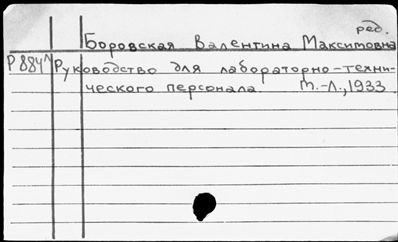 ред.
Боровская Валентина Максимовна
Р884^л Руководство для лабораторно-техни-
ческого персонала. М.-Л., 1933